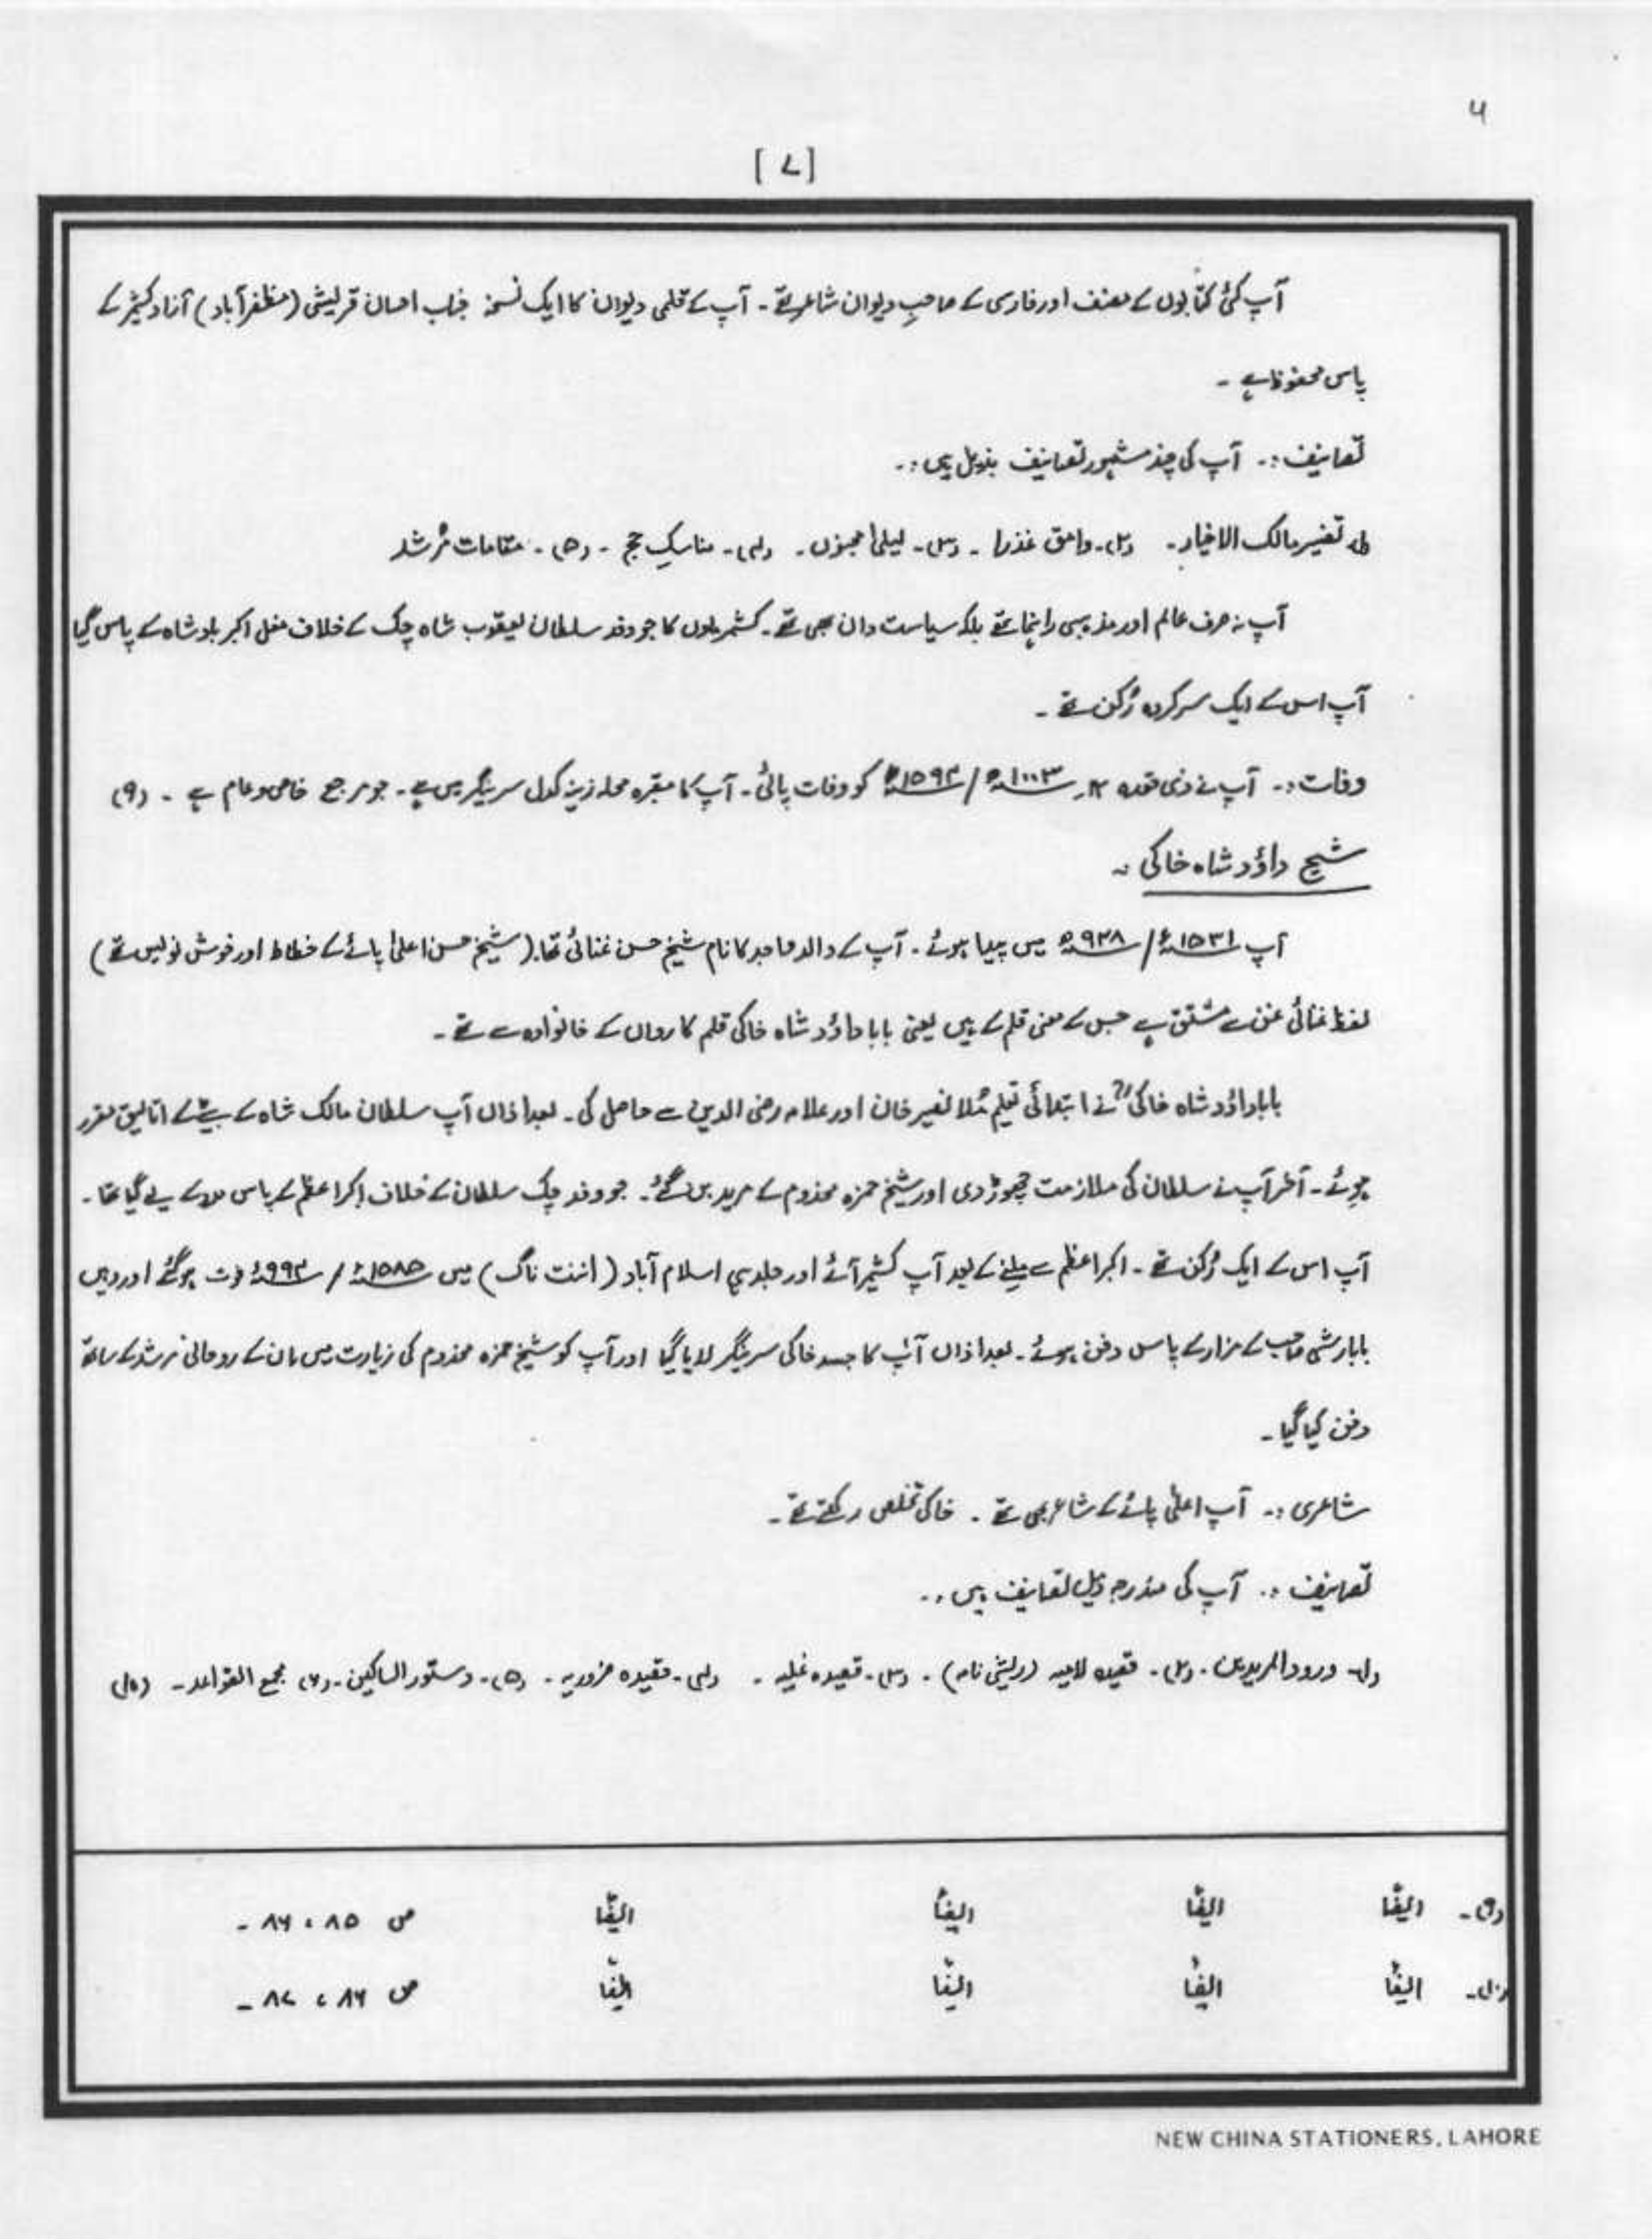 ۶
[ ۷ ]
آپ کئی کتابوں کے مصنف اور فارسی کے صاحبِ دیوان شاعر تھے۔ آپ کے قلمی دیوان کا ایک نسخہ جناب احسان قریشی (مظفرآباد) آزاد کشمیر کے
پاس محفوظ ہے ۔
تصانیف :۔ آپ کی چند مشہور تصانیف بذیل ہیں :۔
(۱) تفسیر مالک الاخیار۔ (۲)۔ وامق عذرا ۔ (۳)۔ لیلیٰ مجنوں ۔ (۴)۔ مناسکِ حج ۔ (۵)۔ مقامات مُرشد
آپ نہ صرف عالم اور مذہبی راہنما تھے بلکہ سیاست دان بھی تھے۔ کشمیریوں کا جو وفد سلطان یعقوب شاہ چک کے خلاف مغل اکبر بادشاہ کے پاس گیا
آپ اس کے ایک سرکردہ رُکن تھے ۔
وفات :۔ آپ نے ذی قعدہ ۱۰۰۳ھ / ۱۵۹۴ء کو وفات پائی۔ آپ کا مقبرہ محلہ زینہ کدل سرینگر میں ہے۔ جو مرجع خاص و عام ہے ۔ (۹)
شیخ داؤد شاہ خاکی :۔
آپ ۱۵۳۱ء / ۹۳۸ھ میں پیدا ہوئے۔ آپ کے والد ماجد کا نام شیخ حسن غنائی تھا۔ (شیخ حسن اعلیٰ پائے کے خطاط اور خوش نویس تھے)
لفظ غنائی غنی سے مشتق ہے جس کے معنی قلم کے ہیں یعنی بابا داؤد شاہ خاکی قلم کاروں کے خانوادہ سے تھے۔
بابا داؤد شاہ خاکیؒ نے ابتدائی تعلیم مُلا نصیر خان اور علامہ رضی الدین سے حاصل کی۔ بعدازاں آپ سلطان مالک شاہ کے بیٹے کے اتالیق مقرر
ہوئے۔ آخر آپ نے سلطان کی ملازمت چھوڑ دی اور شیخ حمزہ مخدوم کے مرید بن گئے۔ جو وفد چک سلطان کے خلاف اکبر اعظم کے پاس مدد کے لیے گیا تھا۔
آپ اس کے ایک رُکن تھے۔ اکبر اعظم سے ملنے کے بعد آپ کشمیر آئے اور جلد ہی اسلام آباد (اننت ناگ) میں ۱۵۸۵ء / ۹۹۴ھ فوت ہوگئے اور وہیں
بابا رشی صاحب کے مزار کے پاس دفن ہوئے۔ بعدازاں آپ کا جسد خاکی سرینگر لایا گیا اور آپ کو شیخ حمزہ مخدوم کی زیارت میں ان کے روحانی مرشد کے ساتھ
دفن کیا گیا۔
شاعری :۔ آپ اعلیٰ پائے کے شاعر بھی تھے ۔ خاکی تخلص رکھتے تھے۔
تصانیف :۔ آپ کی مندرجہ ذیل تصانیف ہیں :۔
(۱)۔ ورود المریدین۔ (۲)۔ قصیدہ لامیہ (ریشی نامہ)۔ (۳)۔ قصیدہ غسلیہ ۔ (۴)۔ قصیدہ ضروریہ ۔ (۵)۔ دستور السالکین۔ (۶) مجمع القواعد۔ (۱۰)
(۹)۔ ایضًا ایضًا ایضًا ایضًا ص ۸۵ ، ۸۶ ۔
(۱۰)۔ ایضًا ایضًا ایضًا ایضًا ص ۸۶ ، ۸۷ ۔
NEW CHINA STATIONERS, LAHORE